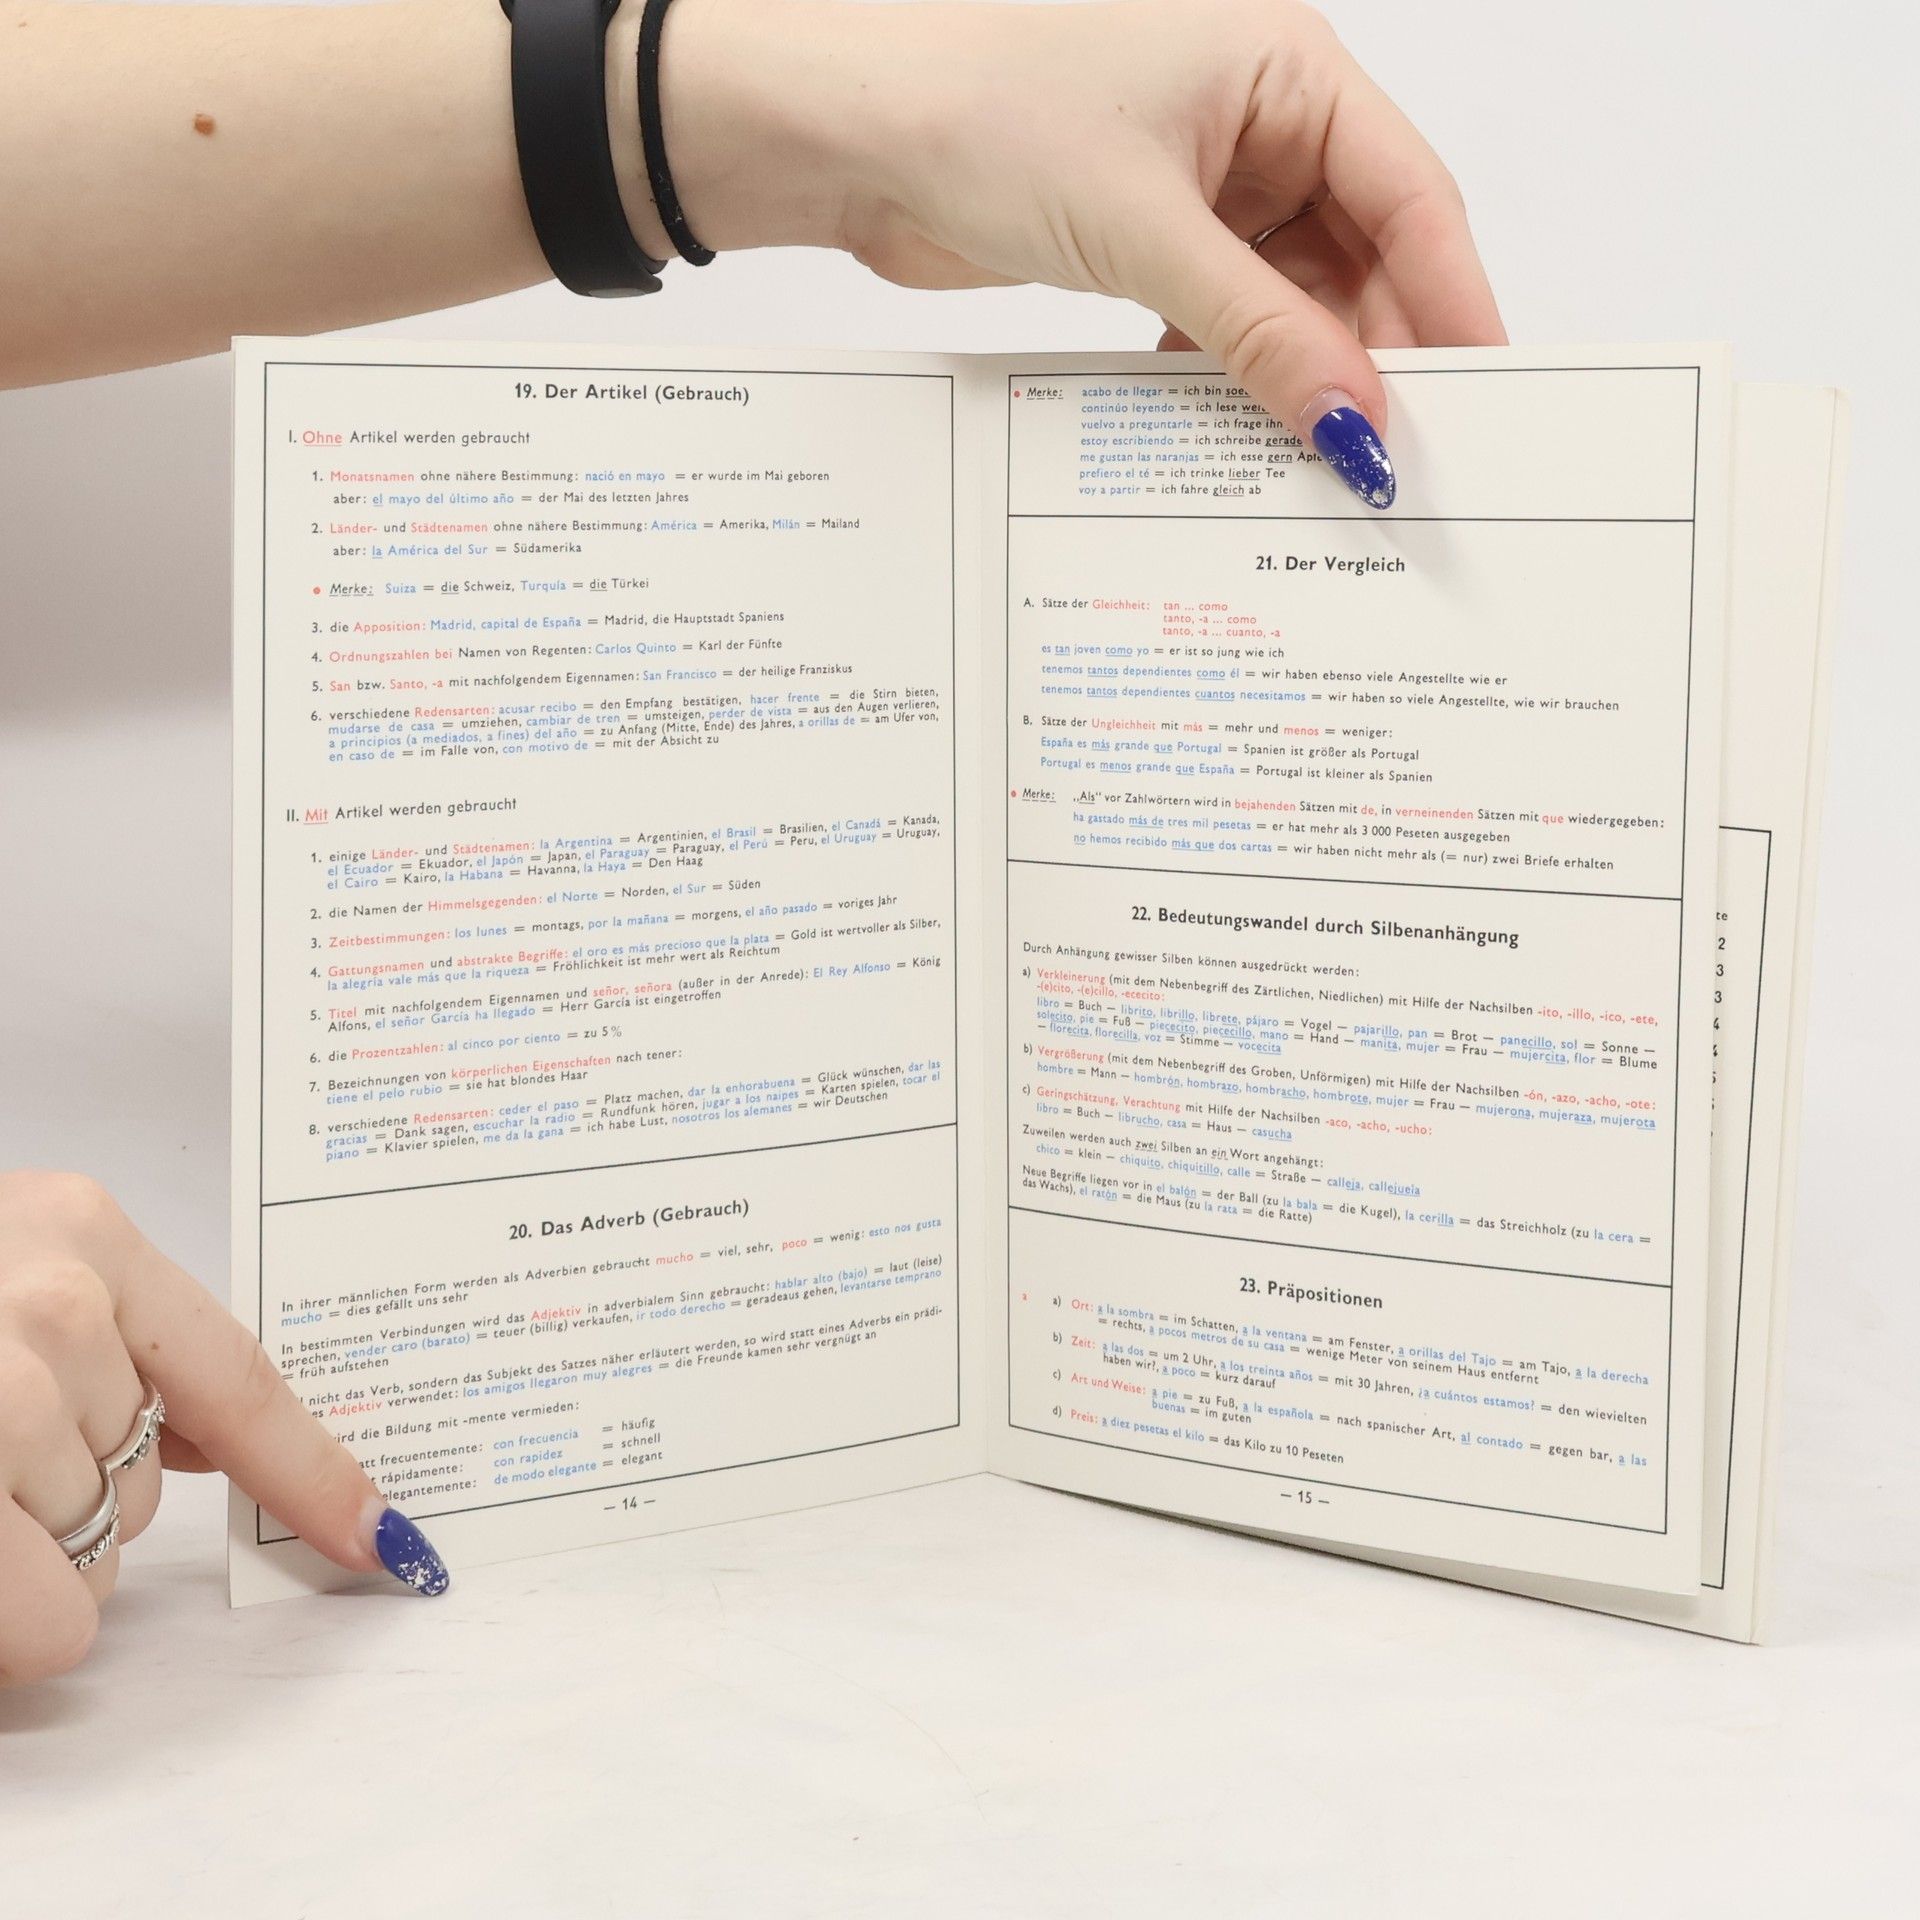 19. Der Artikel (Gebrauch)
I. Ohne Artikel werden gebraucht
1. Monatsnamen ohne nähere Bestimmung: nació en mayo = er wurde im Mai geboren
aber: el mayo del último año = der Mai des letzten Jahres
2. Länder- und Städtenamen ohne nähere Bestimmung: América = Amerika, Milán = Mailand
aber: la América del Sur = Südamerika
• Merke: Suiza = die Schweiz, Turquía = die Türkei
3. die Apposition: Madrid, capital de España = Madrid, die Hauptstadt Spaniens
4. Ordnungszahlen bei Namen von Regenten: Carlos Quinto = Karl der Fünfte
5. San bzw. Santo, -a mit nachfolgendem Eigennamen: San Francisco = der heilige Franziskus
6. verschiedene Redensarten: acusar recibo = den Empfang bestätigen, hacer frente = die Stirn bieten,
mudarse de casa = umziehen, cambiar de tren = umsteigen, perder de vista = aus den Augen verlieren,
a principios (a mediados, a fines) del año = zu Anfang (Mitte, Ende) des Jahres, a orillas de = am Ufer von,
en caso de = im Falle von, con motivo de = mit der Absicht zu
II. Mit Artikel werden gebraucht
1. einige Länder- und Städtenamen: la Argentina = Argentinien, el Brasil = Brasilien, el Canadá = Kanada,
el Ecuador = Ekuador, el Japón = Japan, el Paraguay = Paraguay, el Perú = Peru, el Uruguay = Uruguay,
el Cairo = Kairo, la Habana = Havanna, la Haya = Den Haag
2. die Namen der Himmelsgegenden: el Norte = Norden, el Sur = Süden
3. Zeitbestimmungen: los lunes = montags, por la mañana = morgens, el año pasado = voriges Jahr
4. Gattungsnamen und abstrakte Begriffe: el oro es más precioso que la plata = Gold ist wertvoller als Silber,
la alegría vale más que la riqueza = Fröhlichkeit ist mehr wert als Reichtum
5. Titel mit nachfolgendem Eigennamen und señor, señora (außer in der Anrede): El Rey Alfonso = König
Alfons, el señor García ha llegado = Herr García ist eingetroffen
6. die Prozentzahlen: al cinco por ciento = zu 5%
7. Bezeichnungen von körperlichen Eigenschaften nach tener:
tiene el pelo rubio = sie hat blondes Haar
8. verschiedene Redensarten: ceder el paso = Platz machen, dar la enhorabuena = Glück wünschen, dar las
gracias = Dank sagen, escuchar la radio = Rundfunk hören, jugar a los naipes = Karten spielen, tocar el
piano = Klavier spielen, me da la gana = ich habe Lust, nosotros los alemanes = wir Deutschen
20. Das Adverb (Gebrauch)
In ihrer männlichen Form werden als Adverbien gebraucht mucho = viel, sehr, poco = wenig: esto nos gusta
mucho = dies gefällt uns sehr
In bestimmten Verbindungen wird das Adjektiv in adverbialem Sinn gebraucht: hablar alto (bajo) = laut (leise)
sprechen, vender caro (barato) = teuer (billig) verkaufen, ir todo derecho = geradeaus gehen, levantarse temprano
= früh aufstehen
nicht das Verb, sondern das Subjekt des Satzes näher erläutert werden, so wird statt eines Adverbs ein prädi-
es Adjektiv verwendet: los amigos llegaron muy alegres = die Freunde kamen sehr vergnügt an
ird die Bildung mit -mente vermieden:
att frecuentemente: con frecuencia = häufig
t rápidamente: con rapidez = schnell
elegantemente: de modo elegante = elegant
— 14 —
• Merke: acabo de llegar = ich bin
continúo leyendo = ich lese
vuelvo a preguntarle = ich frage ihn
estoy escribiendo = ich schreibe gerade
me gustan las naranjas = ich esse gern
prefiero el té = ich trinke lieber Tee
voy a partir = ich fahre gleich ab
21. Der Vergleich
A. Sätze der Gleichheit: tan ... como
tanto, -a ... como
tanto, -a ... cuanto, -a
es tan joven como yo = er ist so jung wie ich
tenemos tantos dependientes como él = wir haben ebenso viele Angestellte wie er
tenemos tantos dependientes cuantos necesitamos = wir haben so viele Angestellte, wie wir brauchen
B. Sätze der Ungleichheit mit más = mehr und menos = weniger:
España es más grande que Portugal = Spanien ist größer als Portugal
Portugal es menos grande que España = Portugal ist kleiner als Spanien
• Merke: „Als“ vor Zahlwörtern wird in bejahenden Sätzen mit de, in verneinenden Sätzen mit que wiedergegeben:
ha gastado más de tres mil pesetas = er hat mehr als 3 000 Peseten ausgegeben
no hemos recibido más que dos cartas = wir haben nicht mehr als (= nur) zwei Briefe erhalten
22. Bedeutungswandel durch Silbenanhängung
Durch Anhängung gewisser Silben können ausgedrückt werden:
a) Verkleinerung (mit dem Nebenbegriff des Zärtlichen, Niedlichen) mit Hilfe der Nachsilben -ito, -illo, -ico, -ete,
-(e)cito, -(e)cillo, -ececito:
libro = Buch — librito, librillo, librete, pájaro = Vogel — pajarillo, pan = Brot — panecillo, sol = Sonne —
solecito, pie = Fuß — piececito, piececillo, mano = Hand — manita, mujer = Frau — mujercita, flor = Blume
— florecita, florecilla, voz = Stimme — vocecita
b) Vergrößerung (mit dem Nebenbegriff des Groben, Unförmigen) mit Hilfe der Nachsilben -ón, -azo, -acho, -ote:
hombre = Mann — hombrón, hombrazo, hombracho, hombrote, mujer = Frau — mujerona, mujeraza, mujerota
c) Geringschätzung, Verachtung mit Hilfe der Nachsilben -aco, -acho, -ucho:
libro = Buch — librucho, casa = Haus — casucha
Zuweilen werden auch zwei Silben an ein Wort angehängt:
chico = klein — chiquito, chiquitillo, calle = Straße — calleja, callejuela
Neue Begriffe liegen vor in el balón = der Ball (zu la bala = die Kugel), la cerilla = das Streichholz (zu la cera =
das Wachs), el ratón = die Maus (zu la rata = die Ratte)
23. Präpositionen
a a) Ort: a la sombra = im Schatten, a la ventana = am Fenster, a orillas del Tajo = am Tajo, a la derecha
= rechts, a pocos metros de su casa = wenige Meter von seinem Haus entfernt
b) Zeit: a las dos = um 2 Uhr, a los treinta años = mit 30 Jahren, ¿a cuántos estamos? = den wievielten
haben wir?, a poco = kurz darauf
c) Art und Weise: a pie = zu Fuß, a la española = nach spanischer Art, al contado = gegen bar, a las
buenas = im guten
d) Preis: a diez pesetas el kilo = das Kilo zu 10 Peseten
— 15 —
te
2
3
3
4